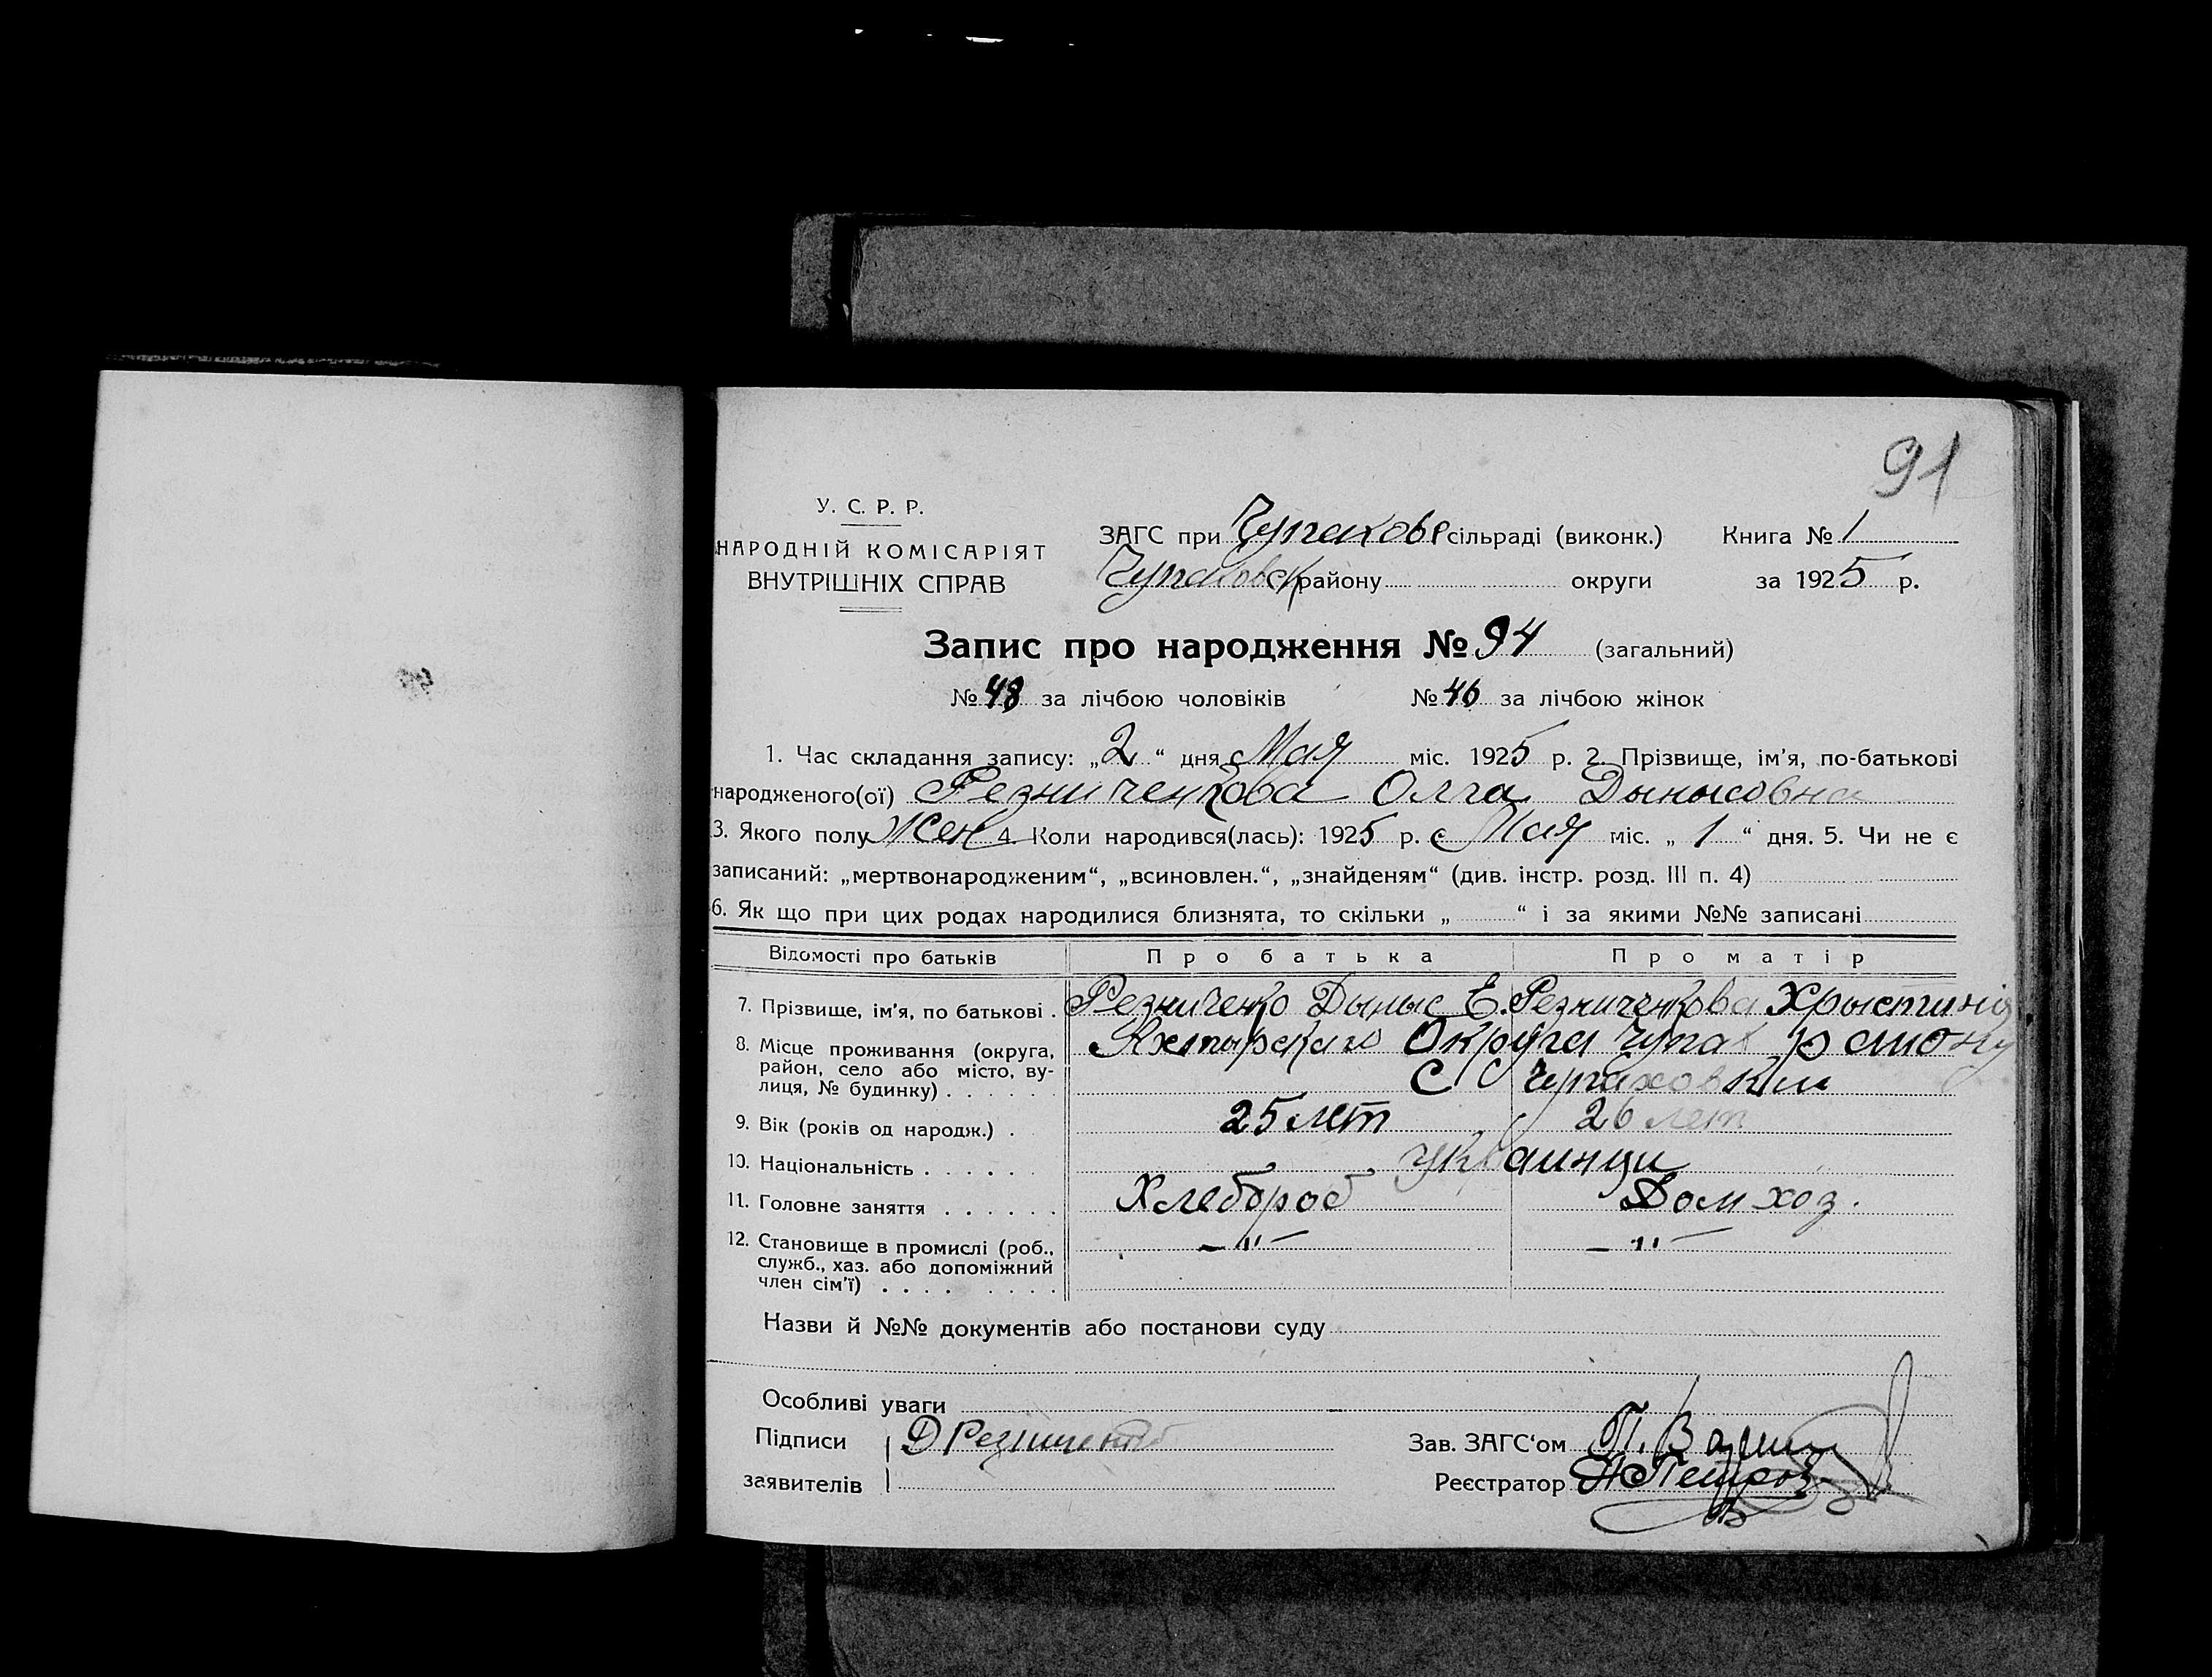 91
У. С. Р. Р.
НАРОДНІЙ КОМІСАРІЯТ
ВНУТРІШНІХ СПРАВ
ЗАГС при Чупаховс сільраді (виконк.) Книга № 1
Чупаховск району округи за 1925 р.
Запис про народження № 94 (загальний)
№ 48 за лічбою чоловіків № 46 за лічбою жінок
1. Час складання запису: „2“ дня Мая міс. 1925 р. 2. Прізвище, ім'я, по-батькові
народженого(ої) Резниченкова Олга Дынысовна
3. Якого полу Жен 4. Коли народився(лась): 1925 р. Мая міс. „1“ дня. 5. Чи не є
записаний: „мертвонародженим“, „всиновлен.“, „знайденям“ (див. інстр. розд. III п. 4)
6. Як що при цих родах народилися близнята, то скільки „ “ і за якими №№ записані
Відомості про батьків Про батька Про матір
7. Прізвище, ім'я, по батькові . Резниченко Дыныс Е. Резниченкова Хрыстиния
8. Місце проживання (округа, район, село або місто, вулиця, № будинку) . . . . . . Ахтырского Округа Чупах району
С Чупаховки
9. Вік (років од народж.) . 25 лет 26 лет
10. Національність . . . . . украинци
11. Головне заняття . . . . . . Хлебороб Дом хоз.
12. Становище в промислі (роб., служб., хаз. або допоміжний член сім'ї) . . . . . . . . –"– –"–
Назви й №№ документів або постанови суду
Особливі уваги
Підписи Д Резниченко Зав. ЗАГС'ом П.
заявителів Реєстратор